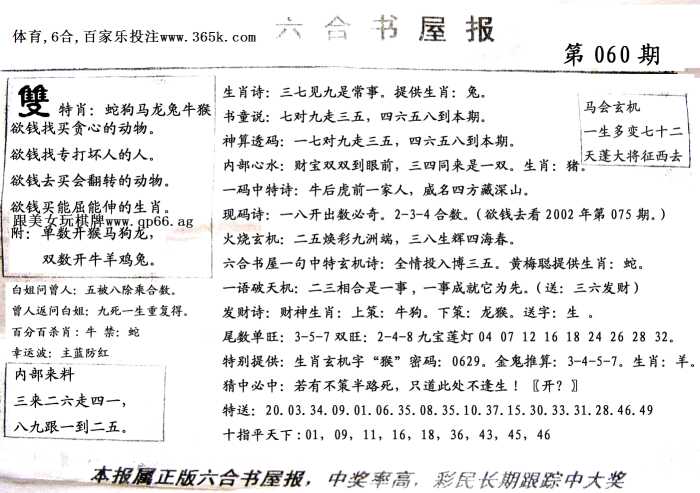 体育,6合,百家乐投注www.365k.com
六合书屋报
第060期
雙 特肖：蛇狗马龙兔牛猴
欲钱找买贪心的动物。
欲钱找专打坏人的人。
欲钱去买会翻转的动物。
欲钱买能屈能伸的生肖。
跟美女玩棋牌www.qp66.ag
附：单数开猴马狗龙，
双数开牛羊鸡兔。
白姐问曾人：五被八除乘合数。
曾人返问白姐：九死一生重复得。
百分百杀肖：牛 禁：蛇
幸运波：主蓝防红
内部来料
三来二六走四一，
八九跟一到二五。
生肖诗：三七见九是常事。提供生肖：兔。
书童说：七对九走三五，四六五八到本期。
神算透码：一七对九走三五，四六五八到本期。
内部心水：财宝双双到眼前，三四同来是一双。生肖：猪。
一码中特诗：牛后虎前一家人，威名四方藏深山。
现码诗：一八开出数必奇。2-3-4合数。（欲钱去看2002年第075期。）
火烧玄机：二五焕彩九洲端，三八生辉四海春。
六合书屋一句中特玄机诗：全情投入博三五。黄梅聪提供生肖：蛇。
一语破天机：二三相合是一事，一事成就它为先。（送：三六发财）
发财诗：财神生肖：上策：牛狗。下策：龙猴。送字：生 。
尾数单旺：3-5-7双旺：2-4-8九宝莲灯04 07 12 16 18 24 26 28 32。
特别提供：生肖玄机字“猴”密码：0629。金鬼推算：3-4-5-7。生肖：羊。
猜中必中：若有不策半路死，只道此处不逢生！〖开？〗
特送：20.03.34.09.01.06.35.08.35.10.37.15.30.33.31.28.46.49
十指平天下:01, 09, 11, 16, 18, 36, 43, 45, 46
马会玄机
一生多变七十二
天蓬大将征西去
本报属正版六合书屋报，中奖率高，彩民长期跟踪中大奖